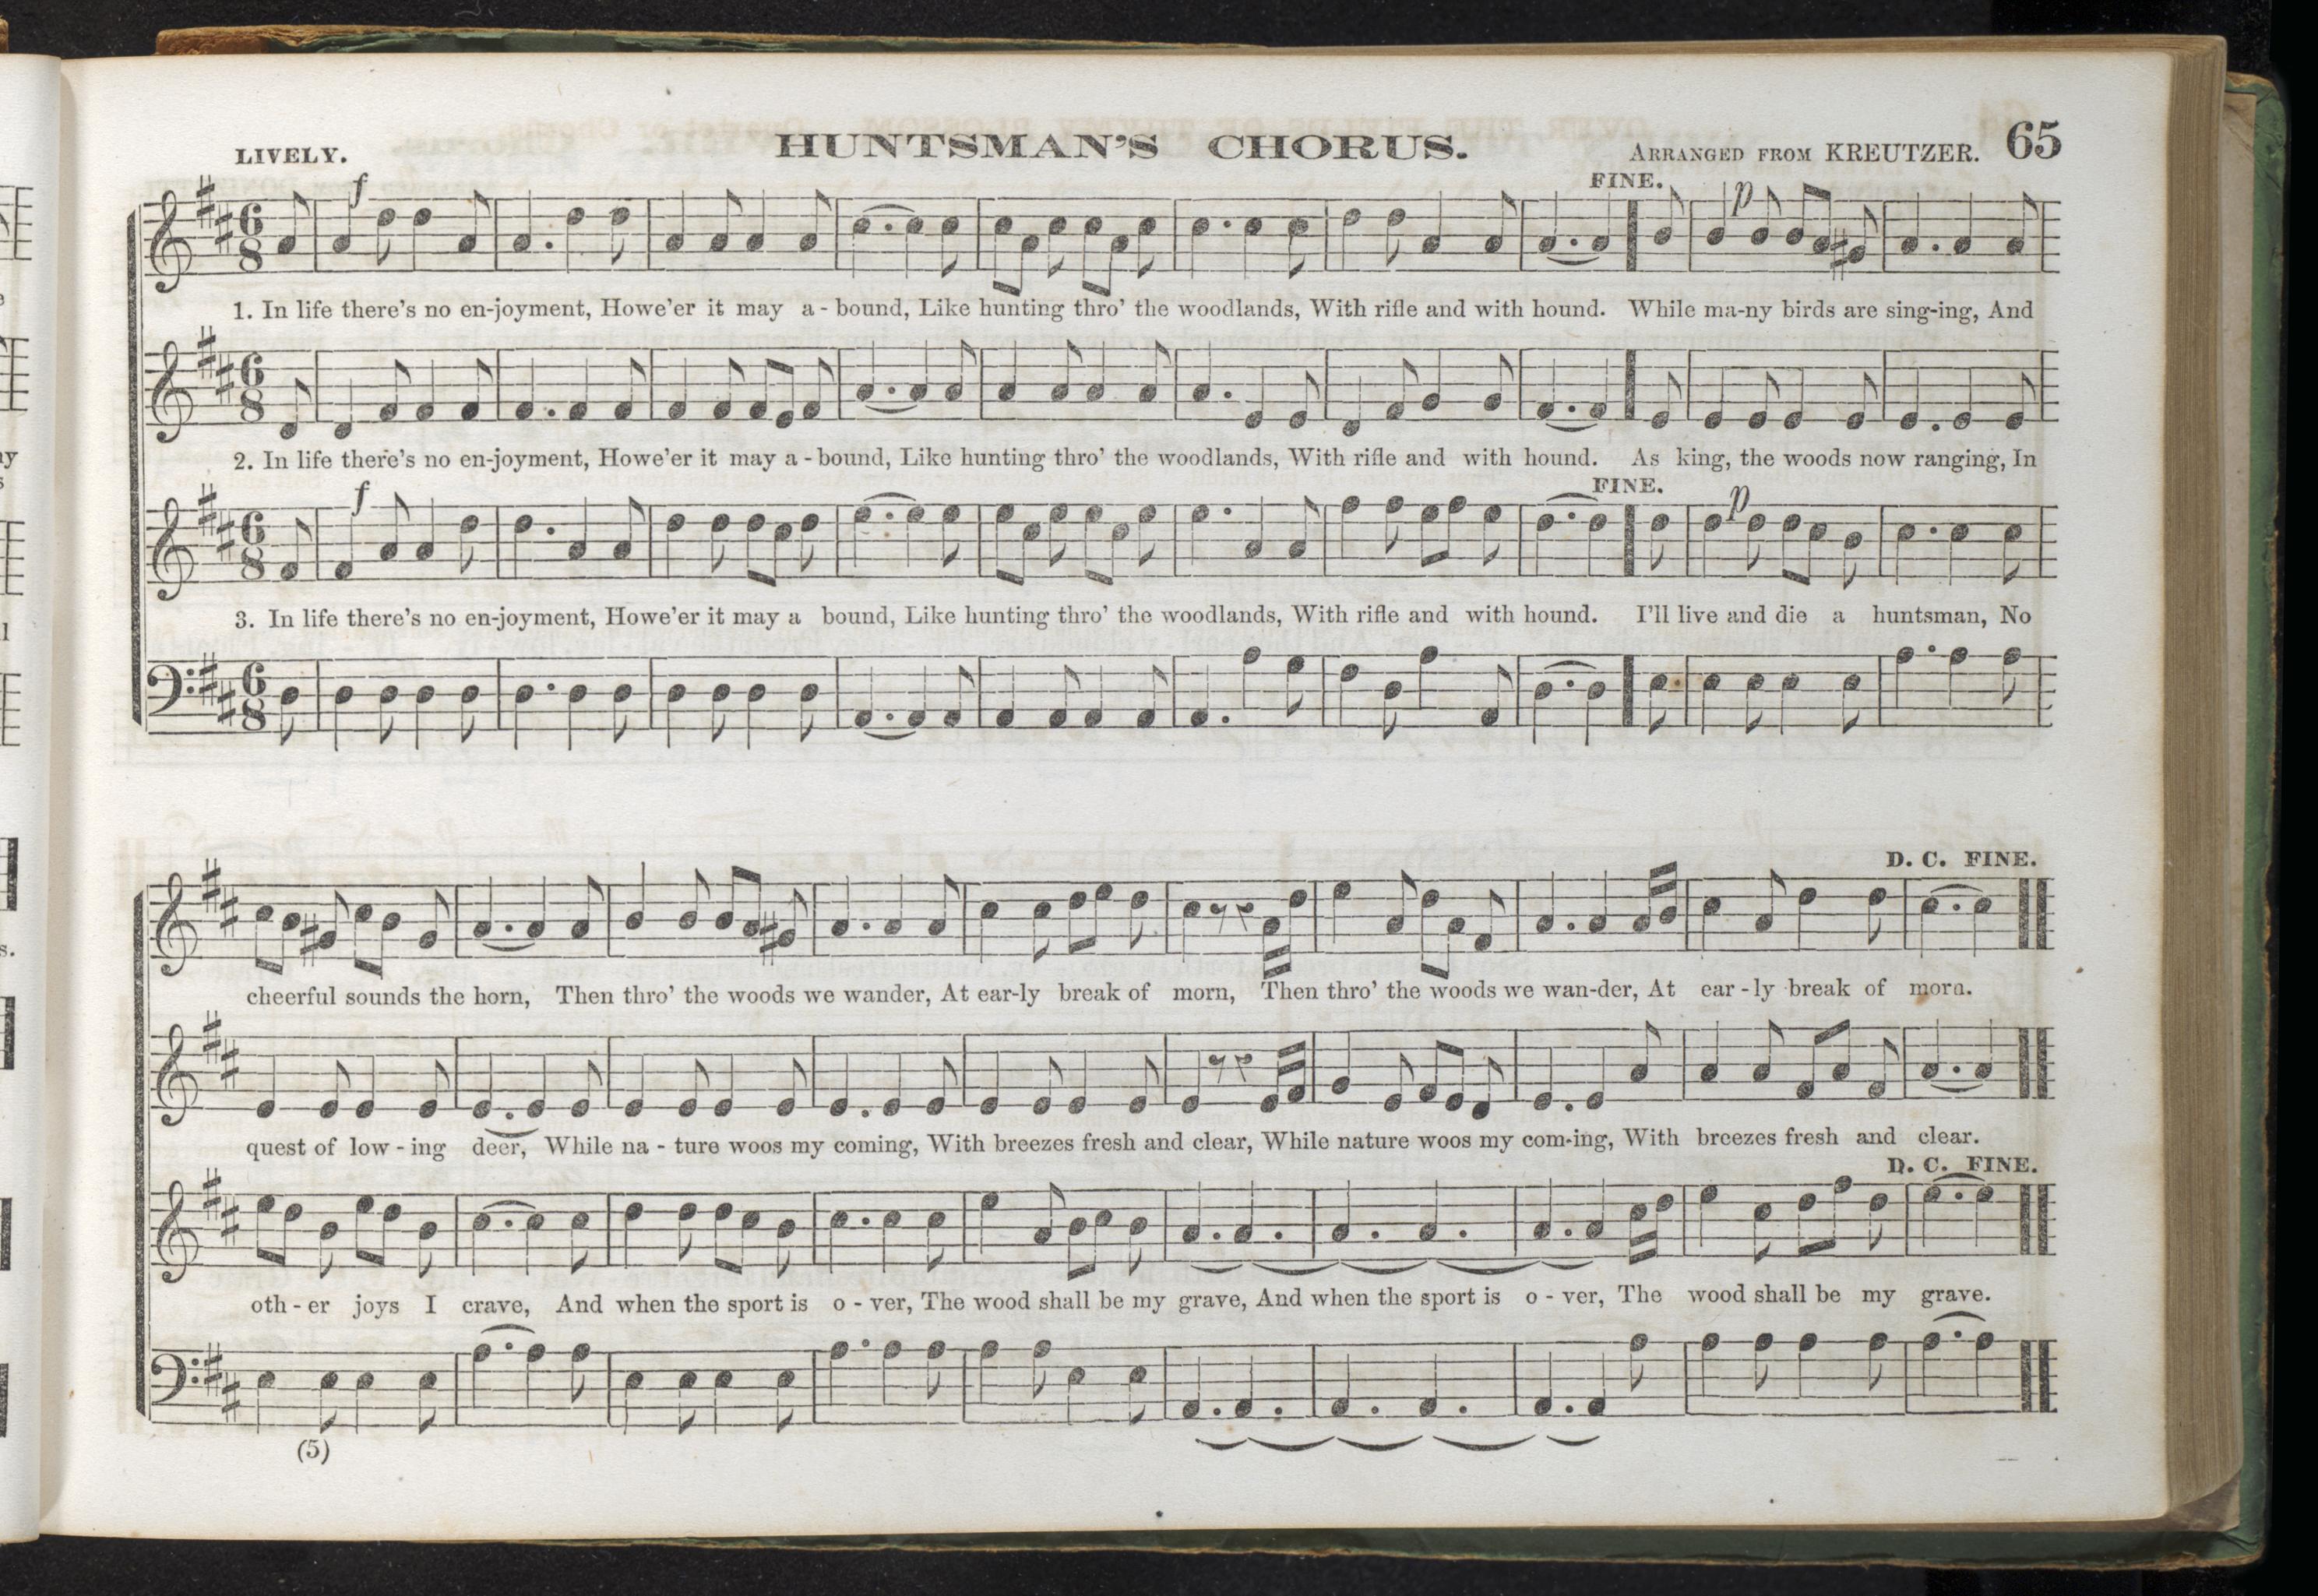 LIVELY. HUNTSMAN'S CHORUS. ARRANGED FROM KREUTZER. 65
f FINE. p
6 8
1. In life there's no en-joyment, Howe'er it may a - bound, Like hunting thro' the woodlands, With rifle and with hound. While ma-ny birds are sing-ing, And
6 8
2. In life there's no en-joyment, Howe'er it may a - bound, Like hunting thro' the woodlands, With rifle and with hound. As king, the woods now ranging, In
f FINE. p
6 8
3. In life there's no en-joyment, Howe'er it may a bound, Like hunting thro' the woodlands, With rifle and with hound. I'll live and die a huntsman, No
6 8
D. C. FINE.
cheerful sounds the horn, Then thro' the woods we wander, At ear-ly break of morn, Then thro' the woods we wan-der, At ear - ly break of morn.
quest of low - ing deer, While na - ture woos my coming, With breezes fresh and clear, While nature woos my com-ing, With breezes fresh and clear.
D. C. FINE.
oth - er joys I crave, And when the sport is o - ver, The wood shall be my grave, And when the sport is o - ver, The wood shall be my grave.
(5)